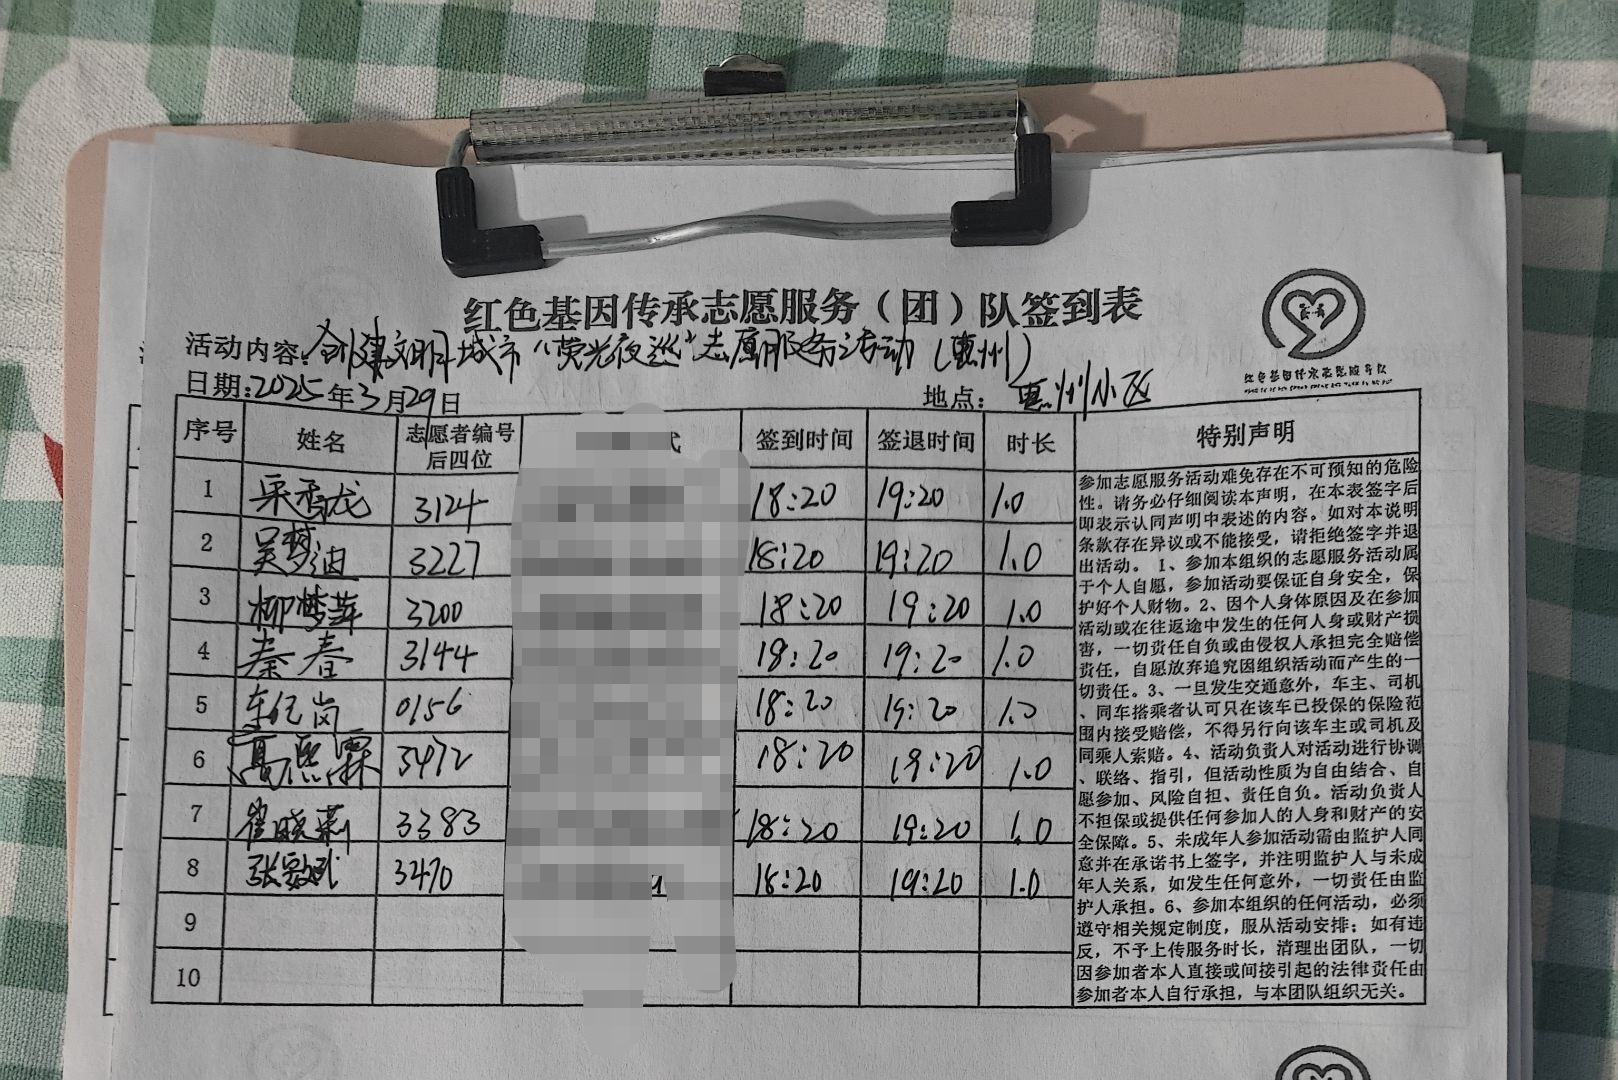 红色基因传承志愿服务（团）队签到表
活动内容：创建文明城市“荧光夜巡”志愿服务活动（惠州）
日期：2025年3月29日 地点：惠州小区
序号 姓名 志愿者编号后四位 式 签到时间 签退时间 时长 特别声明
1 3124 18:20 19:20 1.0
2 吴梦迪 3227 18:20 19:20 1.0
3 柳梦萍 3200 18:20 19:20 1.0
4 秦春 3144 18:20 19:20 1.0
5 0156 18:20 19:20 1.0
6 高熙霖 3472 18:20 19:20 1.0
7 崔晓莉 3383 18:20 19:20 1.0
8 3470 18:20 19:20 1.0
9
10
参加志愿服务活动难免存在不可预知的危险
性。请务必仔细阅读本声明，在本表签字后
即表示认同声明中表述的内容。如对本说明
条款存在异议或不能接受，请拒绝签字并退
出活动。 1、参加本组织的志愿服务活动属
于个人自愿，参加活动要保证自身安全，保
护好个人财物。2、因个人身体原因及在参加
活动或在往返途中发生的任何人身或财产损
害，一切责任自负或由侵权人承担完全赔偿
责任，自愿放弃追究因组织活动而产生的一
切责任。3、一旦发生交通意外，车主、司机
、同车搭乘者认可只在该车已投保的保险范
围内接受赔偿，不得另行向该车主或司机及
同乘人索赔。4、活动负责人对活动进行协调
、联络、指引，但活动性质为自由结合、自
愿参加、风险自担、责任自负。活动负责人
不担保或提供任何参加人的人身和财产的安
全保障。5、未成年人参加活动需由监护人同
意并在承诺书上签字，并注明监护人与未成
年人关系，如发生任何意外，一切责任由监
护人承担。6、参加本组织的任何活动，必须
遵守相关规定制度，服从活动安排；如有违
反，不予上传服务时长，清理出团队，一切
因参加者本人直接或间接引起的法律责任由
参加者本人自行承担，与本团队组织无关。